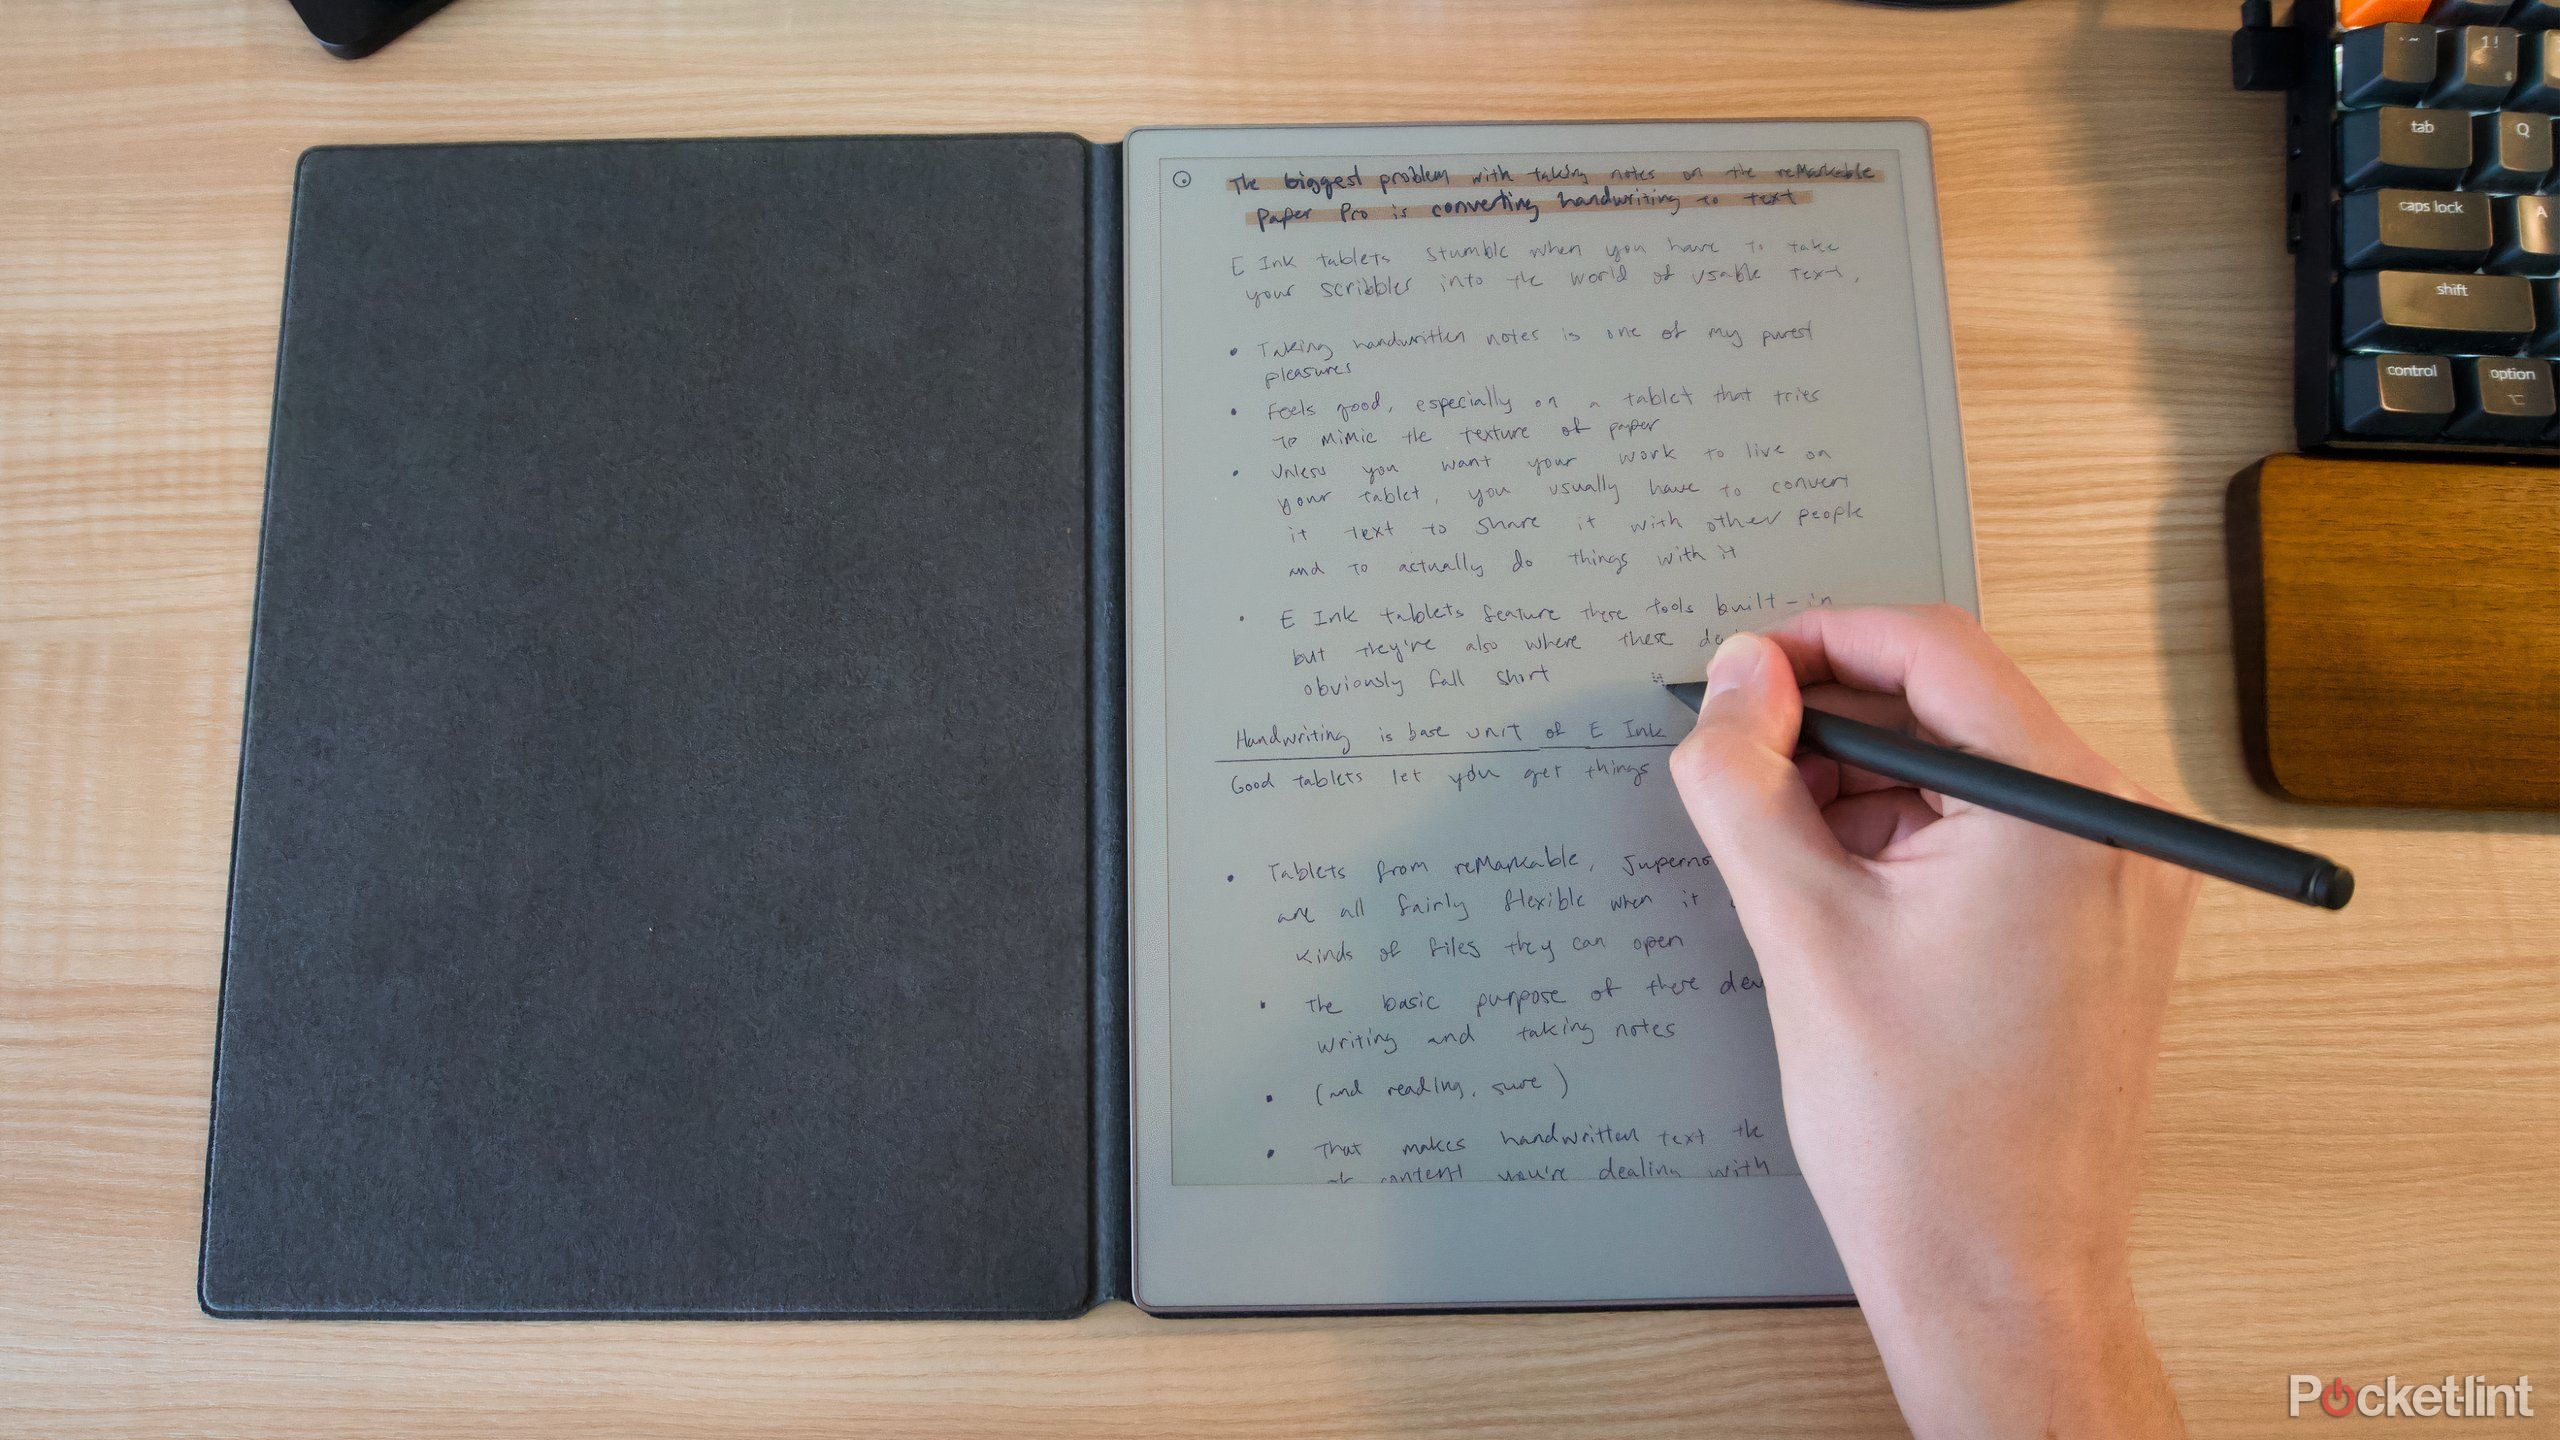 The biggest problem with taking notes on the reMarkable
Paper Pro is converting handwriting to text
E Ink tablets stumble when you have to take
your scribbles into the world of usable text.
• Taking handwritten notes is one of my purest
pleasures
• Feels good, especially on a tablet that tries
to mimic the texture of paper
• Unless you want your work to live on
your tablet, you usually have to convert
it text to share it with other people
and to actually do things with it
• E Ink tablets feature these tools built-in
but they're also where these
obviously fall short
Handwriting is base unit of E Ink
Good tablets let you get things
• Tablets from reMarkable,
are all fairly flexible when it
kinds of files they can open
• The basic purpose of these
writing and taking notes
• (and reading, sure)
• That makes handwritten text the
of content you're dealing with
~ `
1 !
tab
Q
caps lock
A
shift
control
option
⌥
Pocket-lint